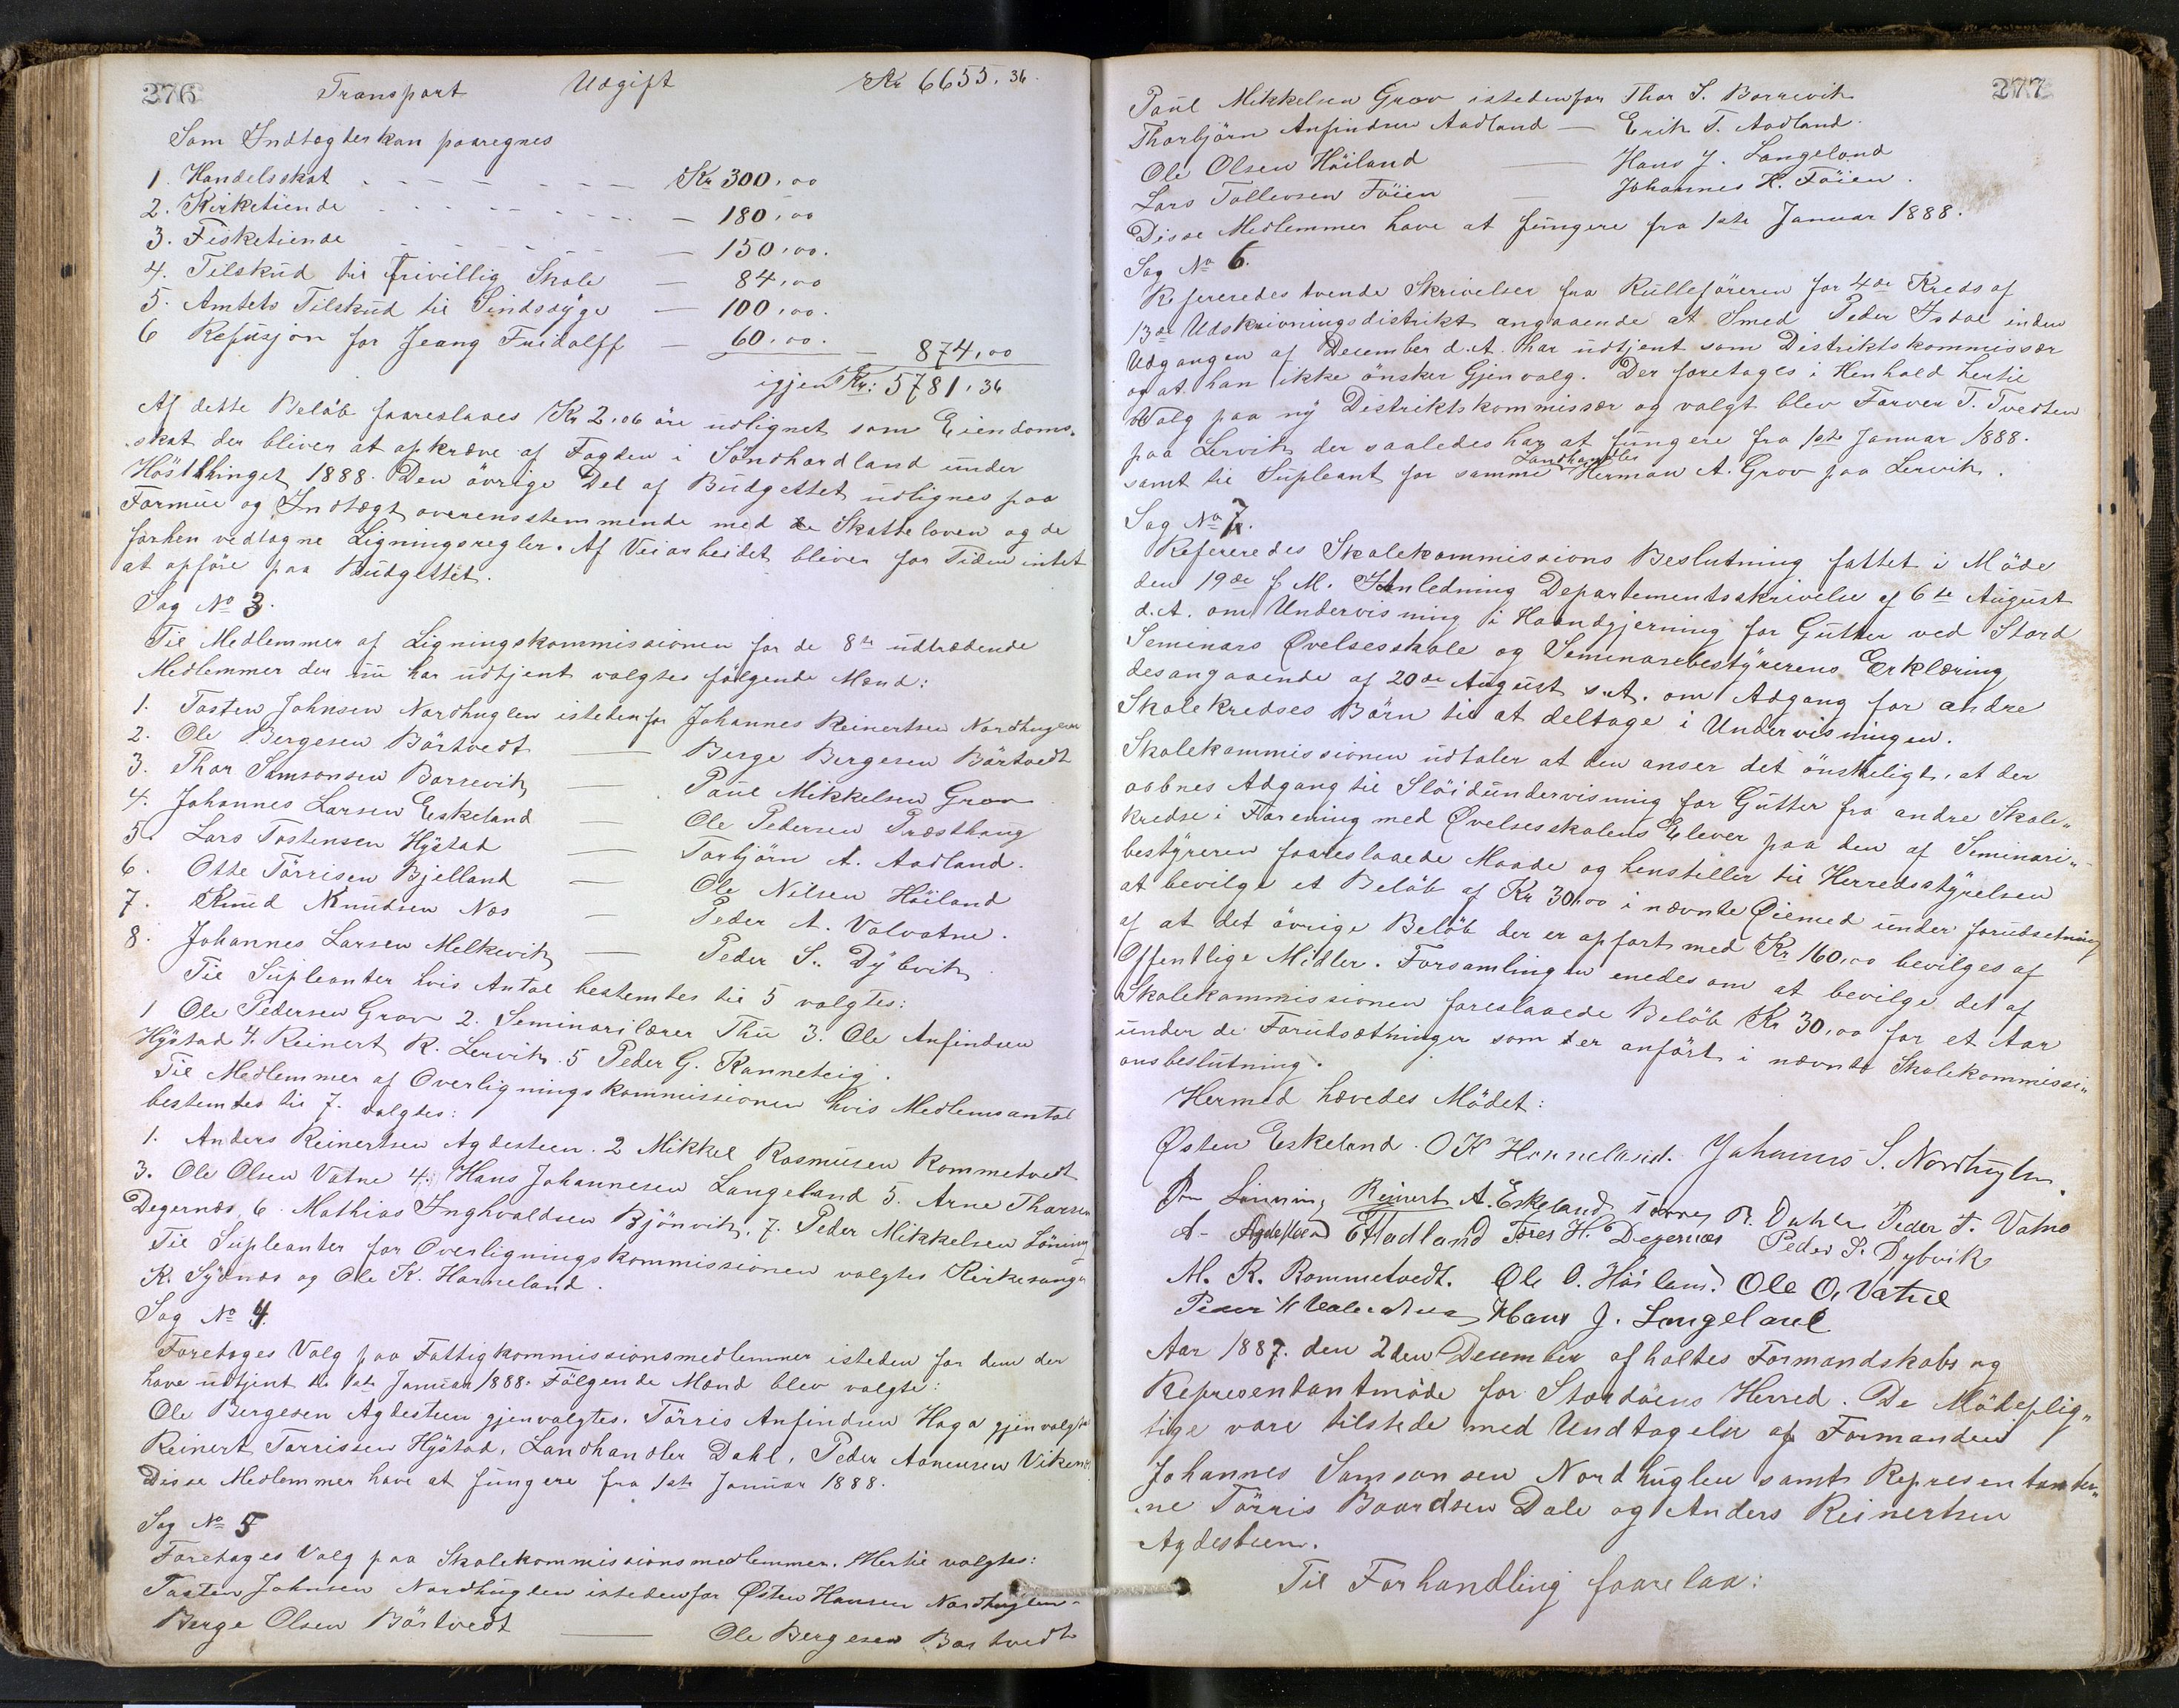 276
Transport Udgift Kr 6655.36
Som Indtægter kan paaregnes
1. Handelsskat - - - - - - - Kr 300,00
2. Kirketiende - - - - - - - - 180,00
3. Fisketiende - - - - - - 150,00.
4. Tilskud til frivillig Skole — 84,00
5. Amtets Tilskud til Sindssyge — 100,00.
6 Refusjon for Jeang Fridolff — 60,00. — 874,00
igjen Kr: 5781,36
Af dette Beløb foareslaaes Kr 2,06 öre udlignet som Eiendoms-
skat der bliver at opkræve af Fogden i Söndhordland under
Høstthinget 1888. Den övrige Del af Budgettet udlignes paa
Formue og Indtægt overensstemmende med de Skatteloven og de
forhen vedtagne Ligningsregler. Af Veiarbeidet bliver for Tiden intet
at opföre paa Budgettet.
Sag No 3.
Til Medlemmer af Ligningskommissionen for de 8te udtrædende
Medlemmer der nu har udtjent valgtes følgende Mænd:
1. Tosten Johnsen Nordhuglen istedenfor Johannes Reinertsen Nordhuglen
2. Ole Bergesen Börtvedt — Berge Bergesen Börtvedt
3. Thor Samsonsen Borrevik — Paul Mikkelsen Grov
4. Johannes Larsen Eskeland — Ole Pedersen Præsthaug
5. Lars Tostensen Hystad — Torbjörn A. Aadland.
6. Otte Törrisen Bjelland — Ole Nilsen Höiland
7. Knud Knudsen Næs — Peder A. Valvatne.
8. Johannes Larsen Melkevik — Peder S. Dybvik
Til Supleanter hvis Antal bestemtes til 5 valgtes:
1 Ole Pedersen Grov 2. Seminarilærer Thu 3. Ole Anfindsen
Hystad 4. Reinert R. Lervik. 5 Peder G. Kanneteig.
Til Medlemmer af Overligningskommissionen hvis Medlemsantal
bestemtes til 7. valgtes:
1. Anders Reinertsen Agdesteen. 2 Mikkel Rasmusen Rommetvedt
3. Ole Olsen Vatne 4. Hans Johannesen Langeland 5. Arne Thorsen
Degernæs, 6. Mathias Inghvaldsen Bjönvik, 7. Peder Mikkelsen Löning
Til Supleanter for Overligningskommissionen valgtes Kirkesanger
K. Sydnæs og Ole K. Horneland.
Sag No 4.
Foretoges Valg paa Fattigkommissionsmedlemmer isteden for dem der
have udtjent til 1ste Januar 1888. Fölgende Mænd blev valgte:
Ole Bergesen Agdesteen gjenvalgtes. Törris Anfindsen Haga gjenvalgtes
Reinert Torrissen Hystad, Landhandler Dahl, Peder Aanensen Vikenes.
Disse Medlemmer have at fungere fra 1ste Januar 1888.
Sag No 5
Foretoges Valg paa Skolekommissionsmedlemmer. Hertil valgtes:
Tosten Johnsen Nordhuglen istedenfor Østen Hansen Nordhuglen-
Berge Olsen Börtvedt — Ole Bergesen Bortvedt
277
Paul Mikkelsen Grov istedenfor Thor S. Borrevik
Thorbjörn Anfindsen Aadland — Erik T. Aadland.
Ole Olsen Höiland — Hans J. Langeland
Lars Tollevsen Töien — Johannes H. Töien.
Disse Medlemmer have at fungere fra 1ste Januar 1888.
Sag No 6.
Refereredes tvende Skrivelser fra Rulleföreren for 4de Kreds af
13de Udskrivningsdistrikt angaaende at Smed Peder Isdal inden
Udgangen af December d.A. har udtjent som Distriktskommissær
og at han ikke önsker Gjenvalg. Der foretages i Henhold hertil
Valg paa ny Distriktskommissær og valgt blev Farver T. Tvedten
paa Lervik der saaledes har at fungere fra 1ste Januar 1888.
samt til Supleant for samme Landhandler Herman A. Grov paa Lervik.
Sag No 7.
Refereredes Skolekommissions Beslutning fattet i Möde
den 19de f.M. Anledning Departementsskrivelse af 6te August
d.A. om Undervisning i Haandgjerning for Gutter ved Stord
Seminars Øvelsesskole og Seminarebestyrerens Erklæring
desangaaende af 20de August s.A. om Adgang for andre
Skolekredses Börn til at deltage i Undervisningen.
Skolekommissionen udtaler at den anser det önskeligt, at der
aabnes Adgang til Slöidundervisning for Gutter fra andre Skole-
kredse i Forening med Øvelsesskolens Elever paa den af Seminari-
bestyreren foareslaaede Maade og henstiller til Herredsstyrelsen
at bevilge et Beløb af Kr 30,00 i nævnte Øiemed under forudsetning
af at det övrige Beløb der er opfört med Kr 160,00 bevilges af
Offentlige Midler. Forsamlingen enedes om at bevilge det af
Skolekommissionen foreslaaede Beløb Kr 30,00 for et Aar
under de Forudsætninger som der anfört i nævnte Skolekommissi-
onsbeslutning.
Hermed hævedes Mödet:
Østen Eskeland. O K Horneland. Johannes S. Nordhuglen.
Lönning Reinert A. Eskeland Torres B. Dahle Peder T. Vatno
A- Agdesteen E Aadland Tores H. Degernæs Peder S. Dybvik
M. R. Rommetvedt. Ole O. Höiland Ole O, Vatne
Peder A Valvatne Hans J. Langeland
Aar 1887. den 2den December afholtes Formandskabs og
Representantmöde for Stordöens Herred. De Mödeplig-
tige vare tilstede med Undtagelse af Formanden
Johannes Samsonsen Nordhuglen samt Representanter-
ne Törris Baardsen Dale og Anders Reinertsen
Agdesteen.
Til Forhandling foarelaa: